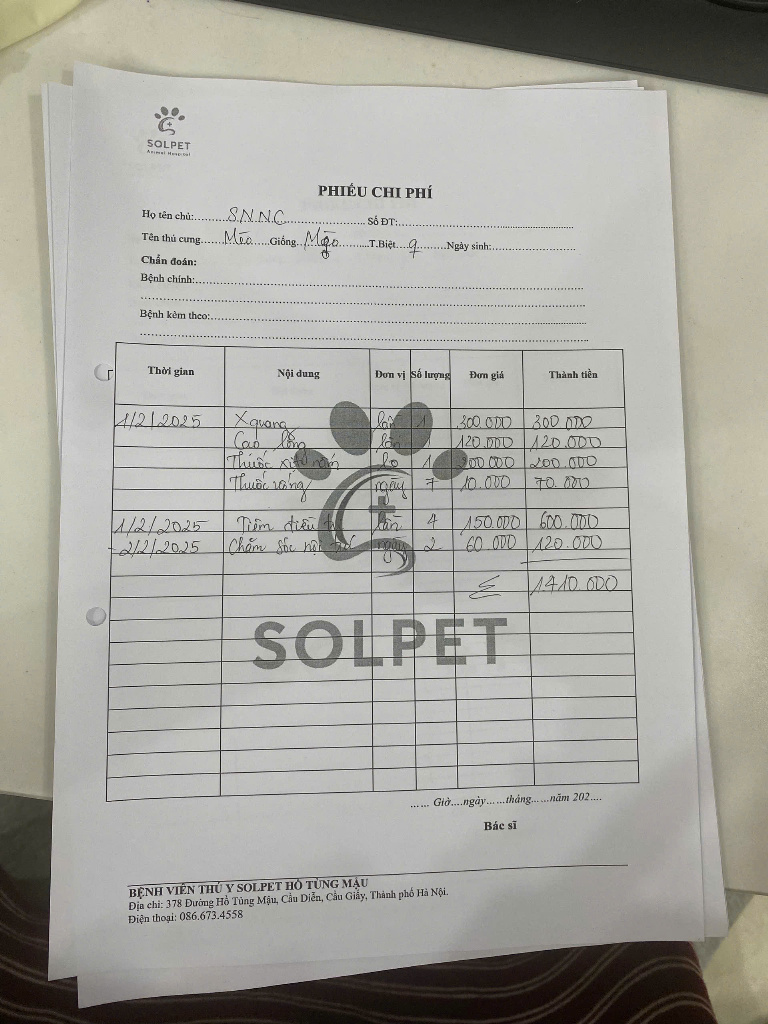 SOLPET
Animal Hospital
PHIẾU CHI PHÍ
Họ tên chủ:......S.N.N.C......Số ĐT:......
Tên thú cưng......Mèo......Giống......T.Biệt......Ngày sinh:......
Chẩn đoán:
Bệnh chính:......
Bệnh kèm theo:......
Thời gian Nội dung Đơn vị Số lượng Đơn giá Thành tiền
1/2/2025 Xquang lần 1 300.000 300.000
Cạo lông lần 1 120.000 120.000
Thuốc xịt nấm lọ 1 200.000 200.000
Thuốc uống ngày 7 10.000 70.000
1/2/2025 Tiêm điều trị lần 4 150.000 600.000
-2/2/2025 Chăm sóc nội trú ngày 2 60.000 120.000
Σ 1410.000
SOLPET
...... Giờ....ngày......tháng......năm 202....
Bác sĩ
BỆNH VIỆN THÚ Y SOLPET HỒ TÙNG MẬU
Địa chỉ: 378 Đường Hồ Tùng Mậu, Cầu Diễn, Cầu Giấy, Thành phố Hà Nội.
Điện thoại: 086.673.4558